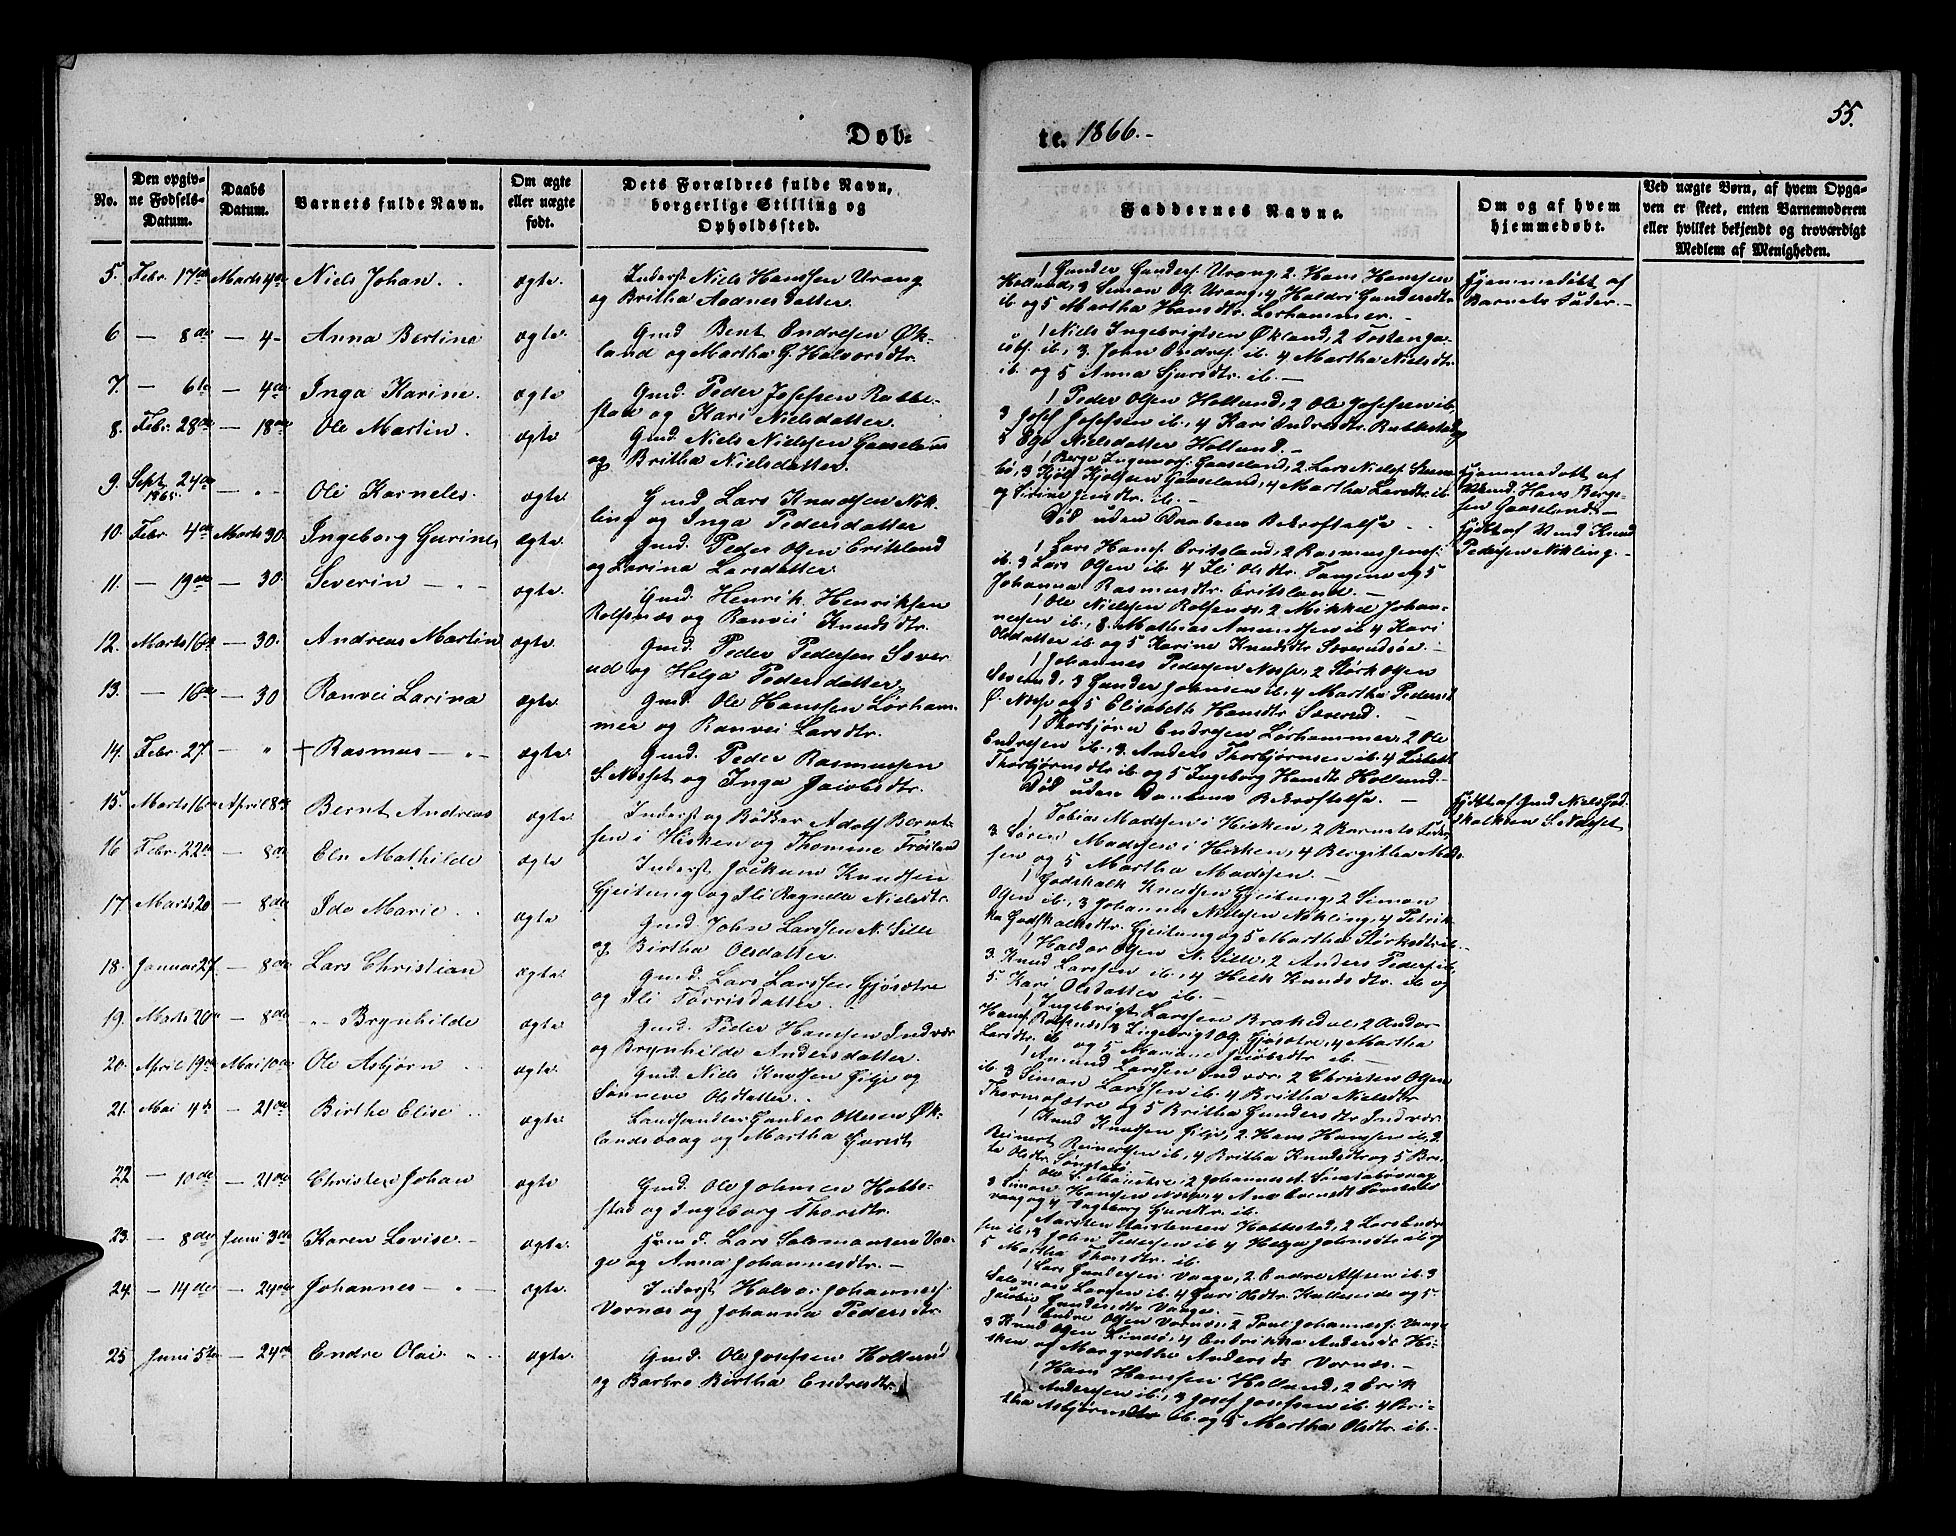 55.
Døb-
te. 1866.-
No.
Den opgiv-
ne Fødsels-
Datum.
Daabs
Datum.
Barnets fulde Navn.
Om ægte
eller uægte
født.
Dets Forældres fulde Navn,
borgerlige Stilling og
Opholdssted.
Faddernes Navne.
Om og af hvem
hjemmedøbt.
Ved uægte Børn, af hvem Opga-
ven er skeet, enten Barnemoderen
eller hvilket bekjendt og troværdigt
Medlem af Menigheden.
5. Febr. 17de Marts 4de Niels Johan ægte. Inderst Niels Hanssen Urang
og Britha Aadnesdatter.
1 Gunder Gunders. Urang, 2. Hans Hanssen
Holland, 3 Simon Ols. Urang, 4 Haldri Gundersdtr
ib. og 5 Martha Hansdtr. Lorhammer.
Hjemmedøbt af
Barnets Fader.-
6 — 8de — 4- Anna Bertine ægte. Gmd Bent Endresen Øk-
land og Martha G. Halvorsdtr.
1 Niels Ingebrigtsen Økland, 2
ib, 3. John Endres. ib. 4 Martha Nielsdtr
ib. og 5 Anna Sjursdtr. ib.-
7. — 6te — 4de Inga Karine. ægte Gmd. Peder Josefsen Rabbe-
stad og Kari Nielsdatter.
1 Peder Olsen Holland, 2 Ole Josefsen ib,
3 Josef Josefsen ib., 4 Kari Endresdtr. Rabbestad og
5 Nielsdatter Holland.-
8. Febr. 28de — 18de Ole Martin. ægte Gmd. Niels Nielssen Gaaseland
og Britha Nielsdatter.
1 Berge Gaaseland, 2 Lars Niels.
3 Kjølsen Gaaseland, 4 Martha Larsdtr. ib
og Jensdtr. ib.-
Hjemmedøbt af
Hans Berge-
sen Gaaseland.-
9. Sept. 24de
1865. — " - Ole Karneles. ægte. Gmd Lars Knudsen Nøk-
ling og Inga Pedersdatter
Død uden Daabens Bekræftelse
Hjdbt af Knud
Pedersen Nøkling.-
10. Febr. 4de Marts 30. Ingeborg Gurine ægte. Gmd. Peder Olsen Eriksland
og Larina Larsdatter.
1 Lars Hans. Eriksland, 2 Rasmus Jens.
ib. 3 Lars Olsen ib. 4 Ili Olsdtr. Tangene og 5
Johanna Rasmusdtr. Eriksland.-
11. — 19de — 30. Severin — " - ægte. Gmd. Henrik Henriksen
Rolfsnæs og Ranvei Knudsdtr.
1 Ole Nielssen Rolfsnæs, 2 Mikkel Johan-
nessen ib., 3. Mathias Amundssen ib. 4 Kari
Olsdatter ib. og 5 Karine Knudsdtr
12. Marts 16de — 30. Andreas Martin ægte. Gmd. Peder Pedersen Sæver-
ud og Helga Pedersdatter.
1 Johannes Pedersen Nesse, 2 Størk Olsen
Sæverud, 3 Gunder Johnsen ib. 4 Martha Pedersdtr
Ø. Nesse og 5 Elisabeth Hansdtr Sæverud.-
13. — 16de — 30 Ranvei Larina ægte. Gmd. Ole Hanssen Lørham-
mer og Ranvei Larsdtr.
1 Thorbjørn Endresen Lørhammer, 2 Ole
Endresen ib., 3. Anders Thorbjørnsen ib. 4 Lisbeth
Thorbjørnsdtr ib. og 5 Ingeborg Hansdtr Holland.-
14. Febr. 27. — " + Rasmus — " - ægte. Gmd. Peder Rasmussen
S. Nesset og Inga Jacobsdtr.
Død uden Daabens Bekræftelse. —
Hjdbt af Gmd Niels God-
skalksen S. Nesset
15. Marts 16de April 8de Bernt Andreas ægte. Inderst og Bødker Adolf Bernt-
sen i Hisken og Thomine Frøisland
1 Tobias Madssen i Hisken, 2 Barnets Fader
3 Søren Madssen i Hisken, 4 Bergitha Mads-
sen og 5 Martha Madssen.-
16 Febr. 22de — 8de Eln Mathilde ægte. Inderst Jockum Knudsen
Gjeitung og Ili Ragnele Nielsdtr.
1 Godskalk Knudsen Gjeitung, 2 Simon
Olsen ib., 3 Johannes Nielssen Nøkling, 4 Petrik-
ka Godskalksdtr. Gjeitung og 5 Martha Størksdtr ib.-
17. Marts 20 — 8de Ida Marie ægte Gmd John Larssen N. Sille
og Birtha Olsdatter.
1 Haldor Olsen N. Sille, 2 Anders Peders. ib,
3. Knud Larssen ib., 4 Knudsdtr. ib og
5. Kari Olsdatter ib.-
18. Januar 27. — 8de Lars Christian ægte. Gmd. Lars Larssen Gjøsætre
og Ili Torrisdatter.
1 Ingebrigt Larssen Brakedal, 2 Andor
Hans. Rolfsnæs, 3 Ingebrigt Ols. Gjøsætre, 4 Martha
Larsdtr. ib og 5 Mariane Jacobsdtr. ib.
19. Marts 20de — 8de " - Brynhilde ægte. Gmd. Peder Hanssen Indvær
og Brynhilde Andersdatter.
1 Amund Larssen Indvær, 2 Christen Olsen
ib. 3 Simon Larssen ib. 4 Britha Nielsdtr
og 5 Britha Gundersdtr Indvær.
20. April 19de Mai 10de Ole Asbjørn ægte. Gmd. Niels Knudsen Filje og
Sønneva Olsdatter.
1 Knud Knudsen Filje, 2. Hans Hanssen ib, 3.
Reinert Reinertsen ib., 4 Britha Knudsdtr og 5 Bri-
ta Olsdtr.
21. Mai 4de — 21de Birthe Elise ægte. Landhandler Gunder Ottesen Øk-
landsvaag og Martha
22 — 10de — 21de Christen Johan ægte Gmd. Ole Johnsen Habbe-
stad og Ingeborg Thorsdtr.
1 Aarsten Aarstensen Habbestad, 2 Lars Endre-
sen ib., 3 John Pedersen ib. 4 Helga Johnsdtr. ib og
5 Martha Thorsdtr. ib.
23. — 8de Juni 3de Karen Lovise.- ægte. Gmd. Lars Salomonsen Vaa-
ge og Anna Johannesdtr.-
1 Lars Gundersen Vaage, 2. Endre Alfsen ib. 3
Salomon Larssen ib. 4 Guri Olsdtr. Kalleseide og 5
Gundersdtr Vaage.-
24. — 14de — 24de Johannes — " - ægte. Inderst Halvor Johannes.
Vornæs og Johanna Pedersdtr
1 Endre Olsen Vornæs, 2 Poul Johanness. Vaage
3 Knud Olsen 4 Endrikka Andersdtr Hi-
sken og Margretha Andersdtr Vornæs.-
25 Juni 5te — 24de Endre Olai. " - ægte. Gmd. Ole Josefsen Holland
og Barbro Birtha Endresdtr.
1 Hans Hanssen Holland, 2 Erik
Anderssen ib., 3 Josef Josefsen ib. 4 Bri-
tha Asbjørnsdtr ib. og 5 Martha Olsdtr ib.-